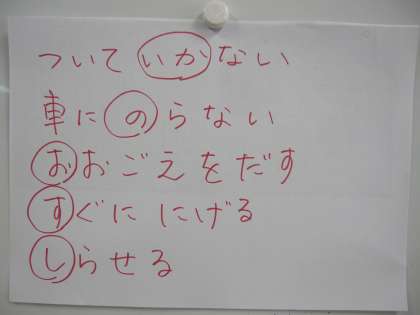 ついていかない
車にのらない
おおごえをだす
すぐに にげる
しらせる